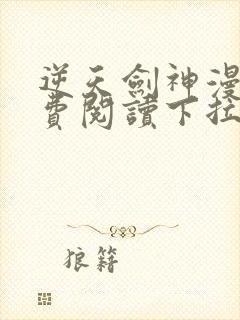 逆天劍神漫
費閱讀下拉
狼籍